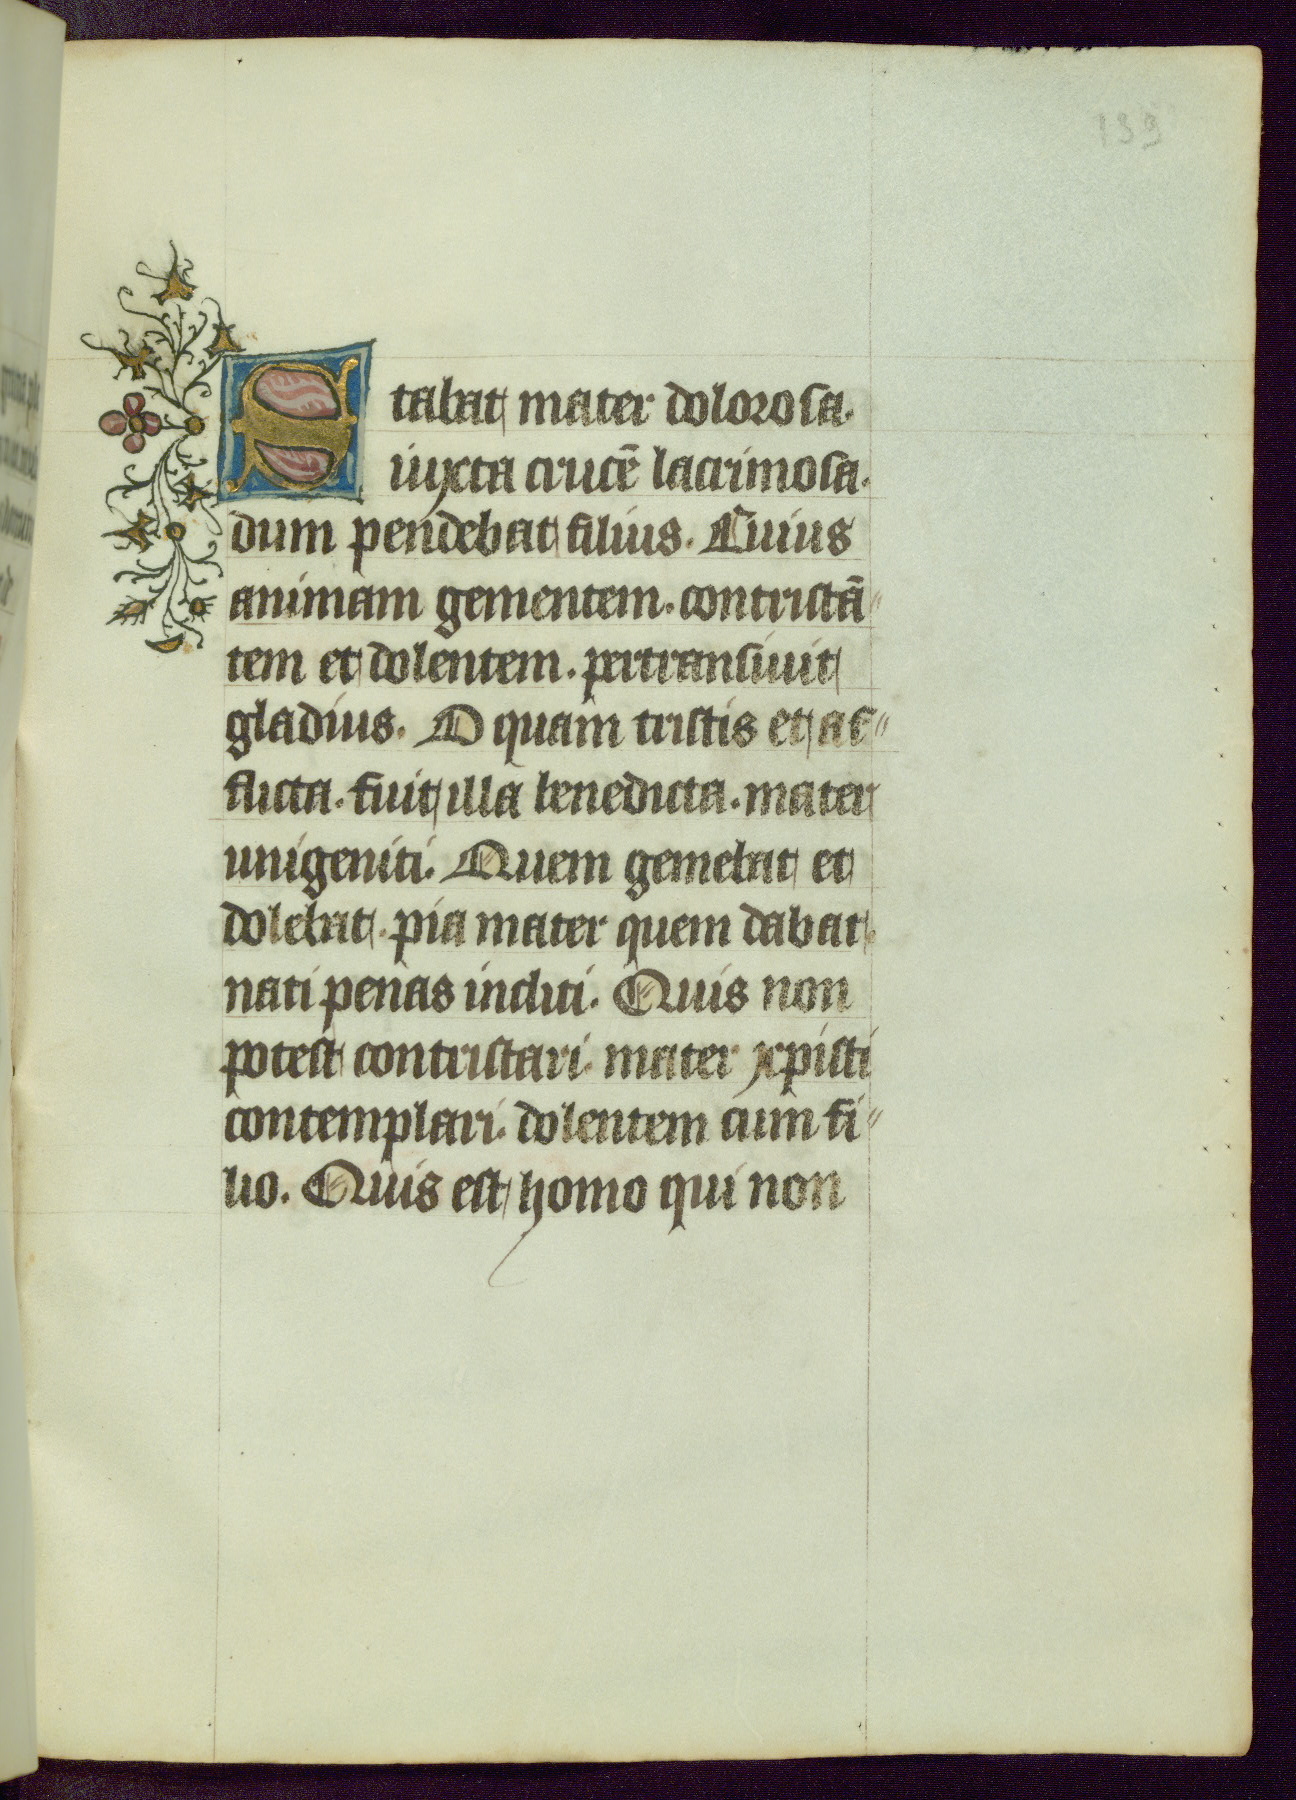 139
Stabat mater dolorosa.
iuxta crucē lacrimosa.
dum pendebat filius. Cuius
animam gementem. contristā
tem et dolentem. pertransiuit
gladius. O quam tristis et af
flicta. fuit illa benedicta. mater
unigeniti. Quem gemebat et
dolebat. pia mater quem dabat.
nati penas incliti. Quis non
potest contristari. mater xpisti
contemplari. dolentem cum fi
lio. Quis est homo qui non